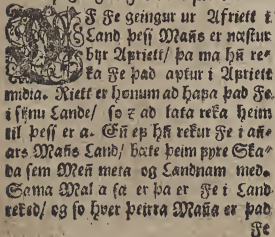 EF Fe geingur ur Afriett i
Land þess Mañs er næstur
byr Afriett/ þa ma hñ re-
ka Fe það aptur i Afriett
midia. Riett er honum ad hafa það Fe.
i sijnu Lande/ so z ad lata reka heim
til þess er a. Eñ ef hñ rekur Fe i añ-
ars Mañs Land/ bæte þeim fyre Ska-
da sem Meñ meta og Landnam med.
Sama Mal a sa er þa er Fe i Land
reked/ og so hver þeirra Maña er þad
Fe